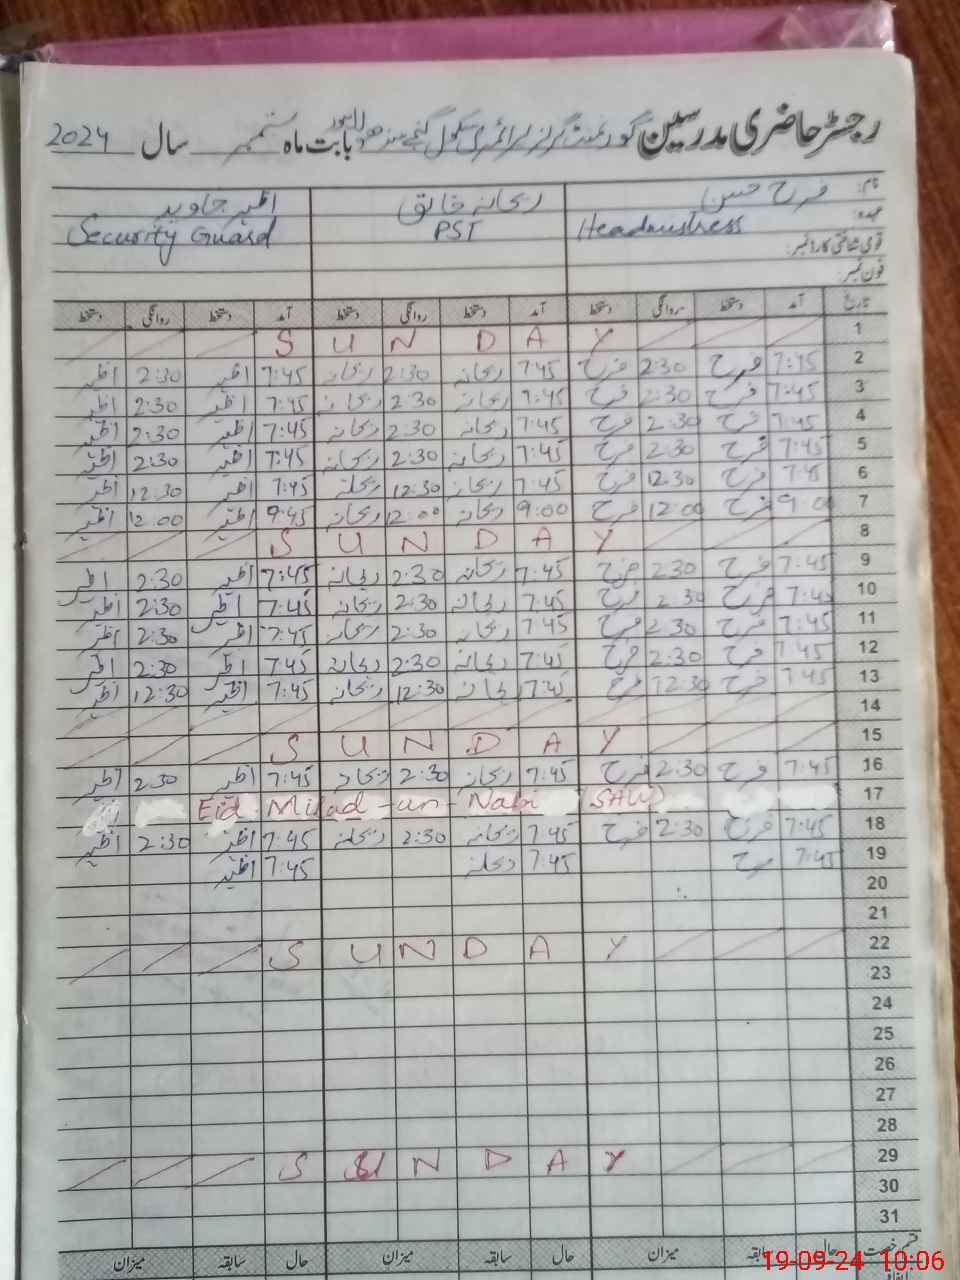 رجسٹر حاضری مدرسین گورنمنٹ گرلز پرائمری سکول گنج سندھو لاہور بابت ماہ ستمبر سال 2024
نام: فرح حسن ریحانہ خالق اظہر جاوید
عہدہ: Headmistress PST Security Guard
قومی شناختی کارڈ نمبر:
فون نمبر:
تاریخ آمد دستخط روانگی دستخط آمد دستخط روانگی دستخط آمد دستخط روانگی دستخط
1 S U N D A Y
2 7:45 فرح 2:30 فرح 7:45 ریحانہ 2:30 ریحانہ 7:45 اظہر 2:30 اظہر
3 7:45 فرح 2:30 فرح 7:45 ریحانہ 2:30 ریحانہ 7:45 اظہر 2:30 اظہر
4 7:45 فرح 2:30 فرح 7:45 ریحانہ 2:30 ریحانہ 7:45 اظہر 2:30 اظہر
5 7:45 فرح 2:30 فرح 7:45 ریحانہ 2:30 ریحانہ 7:45 اظہر 2:30 اظہر
6 7:45 فرح 12:30 فرح 7:45 ریحانہ 12:30 ریحانہ 7:45 اظہر 12:30 اظہر
7 9:00 فرح 12:00 فرح 9:00 ریحانہ 12:00 ریحانہ 9:45 اظہر 12:00 اظہر
8 S U N D A Y
9 7:45 فرح 2:30 فرح 7:45 ریحانہ 2:30 ریحانہ 7:45 اظہر 2:30 اظہر
10 7:45 فرح 2:30 فرح 7:45 ریحانہ 2:30 ریحانہ 7:45 اظہر 2:30 اظہر
11 7:45 فرح 2:30 فرح 7:45 ریحانہ 2:30 ریحانہ 7:45 اظہر 2:30 اظہر
12 7:45 فرح 2:30 فرح 7:45 ریحانہ 2:30 ریحانہ 7:45 اظہر 2:30 اظہر
13 7:45 فرح 12:30 فرح 7:45 ریحانہ 12:30 ریحانہ 7:45 اظہر 12:30 اظہر
14
15 S U N D A Y
16 7:45 فرح 2:30 فرح 7:45 ریحانہ 2:30 ریحانہ 7:45 اظہر 2:30 اظہر
17 Eid Milad-un-Nabi (SAW)
18 7:45 فرح 2:30 فرح 7:45 ریحانہ 2:30 ریحانہ 7:45 اظہر 2:30 اظہر
19 7:45 فرح 7:45 ریحانہ 7:45 اظہر
20
21
22 S U N D A Y
23
24
25
26
27
28
29 S U N D A Y
30
31
قسم رخصت حال سابقہ میزان حال سابقہ میزان حال سابقہ میزان
19-09-24 10:06